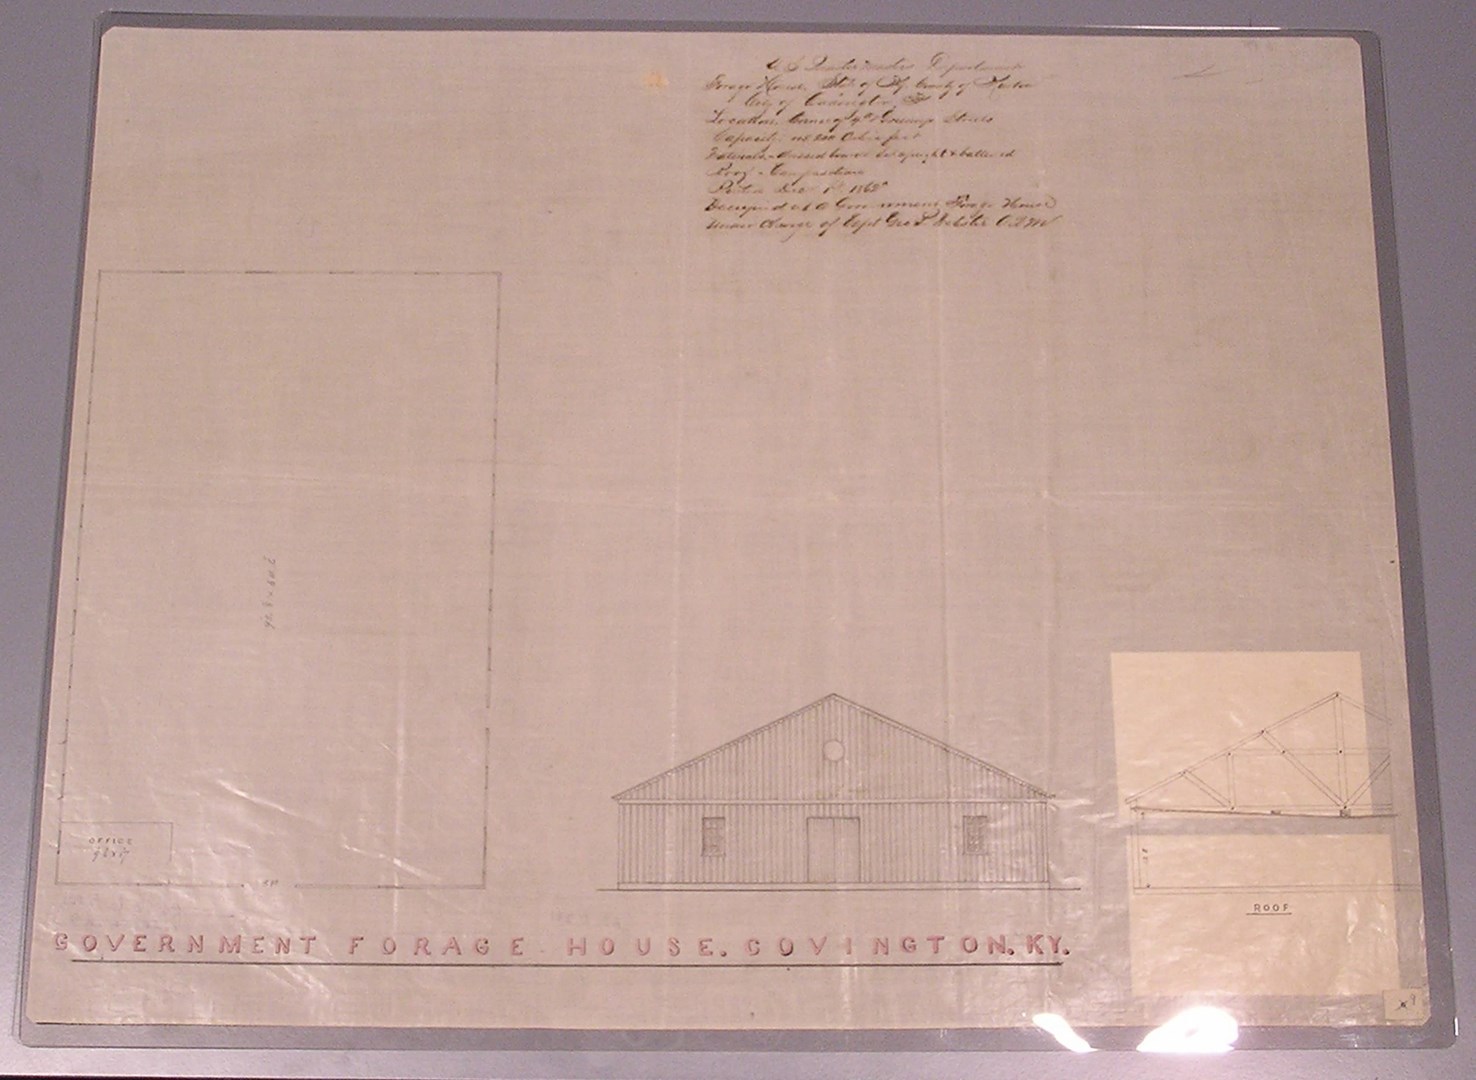 U S Quarter Masters Department
Forage House, State of Ky, County of Kenton
City of Covington
Location, Corner of & Greenup Streets
Capacity Cubic feet
Materials - dressed boards set upright & battened
Roof - Composition
Rented Dec 1st
Occupied as a Government Forage House
Under Charge of Capt Geo Webster A.Q.M.
OFFICE
ROOF
GOVERNMENT FORAGE HOUSE. COVINGTON. KY.